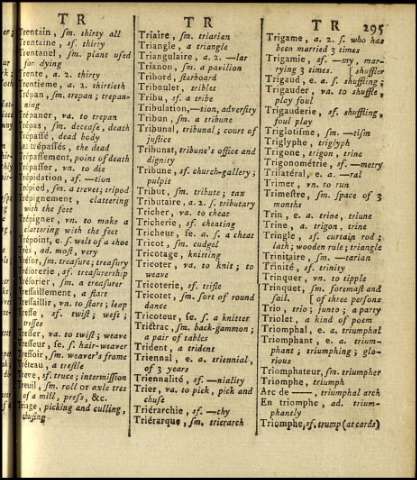 TR
TR
TR 295
Trentain, sm. thirty all
Trentaine, sf. thirty
Trentanel, sm. plant used
for dying
Trente, a. 2. thirty
Trentieme, a. 2. thirtieth
Trépan, sm. trepan; trepan-
ning
Trépaner, va. to trepan
Trépas, sm. decease, death
Trépassé, dead body
Les trépassés, the dead
Trépassement, point of death
Trépasser, vn. to die
Trépidation, sf. —tion
Trépied, sm. a trevet; tripod
Trépignement, clattering
with the feet
Trépigner, vn. to make a
clattering with the feet
Trépoint, e. f. welt of a shoe
Très, ad. most, very
Trésor, sm. treasure; treasury
Trésorerie, sf. treasurership
Trésorier, sm. a treasurer
Tressaillement, a start
Tressaillir, vn. to start; leap
Tresse, sf. twist; weft;
tresses
Tresser, va. to twist; weave
Tresseur, se. f. hair-weaver
Tressoir, sm. weaver's frame
Tréteau, a trestle
Trève, sf. truce; intermission
Treuil, sm. roll or axle tree
of a mill, press, &c.
Triage, picking and culling,
chusing
Triaire, sm. triarian
Triangle, a triangle
Triangulaire, a. 2. —lar
Trianon, sm. a pavilion
Tribord, starboard
Triboulet, tribles
Tribu, sf. a tribe
Tribulation,—tion, adversity
Tribun, sm. a tribune
Tribunal, tribunal; court of
justice
Tribunat, tribune's office and
dignity
Tribune, sf. church-gallery;
pulpit
Tribut, sm. tribute; tax
Tributaire, a. 2. f. tributary
Tricher, va. to cheat
Tricherie, sf. cheating
Tricheur, se. a. f. a cheat
Tricot, sm. cudgel
Tricotage, knitting
Tricoter, va. to knit; to
weave
Tricoterie, sf. trifle
Tricotet, sm. sort of round
dance
Tricoteur, se. f. a knitter
Trictrac, sm. back-gammon;
a pair of tables
Trident, a trident
Triennal, e. a. triennial,
of 3 years
Triennalité, sf. —niality
Trier, va. to pick, pick and
chuse
Triérarchie, sf. —chy
Triérarque, sm. trierarch
Trigame, a. 2. f. who has
been married 3 times
Trigamie, sf. —my, mar-
rying 3 times. [shuffler
Trigaud, e. a. f. shuffling;
Trigauder, va. to shuffle,
play foul
Trigauderie, sf. shuffling,
foul play
Triglotisme, sm. —tism
Triglyphe, triglyph
Trigone, trigon, trine
Trigonométrie, sf. —metry
Trilatéral, e. a. —ral
Trimer, vn. to run
Trimestre, sm. space of 3
months
Trin, e. a. trine, triune
Trine, a. trigon, trine
Tringle, sf. curtain rod;
lath; wooden rule; triangle
Trinitaire, sm. —tarian
Trinité, sf. trinity
Trinquer, vn. to tipple
Trinquet, sm. foremast and
sail. [of three persons
Trio, trio; junto; a party
Triolet, a kind of poem
Triomphal, e. a. triumphal
Triomphant, e. a. trium-
phant; triumphing; glo-
rious
Triomphateur, sm. triumpher
Triomphe, triumph
Arc de ——, triumphal arch
En triomphe, ad. trium-
phantly
Triomphe, sf. trump (at cards)